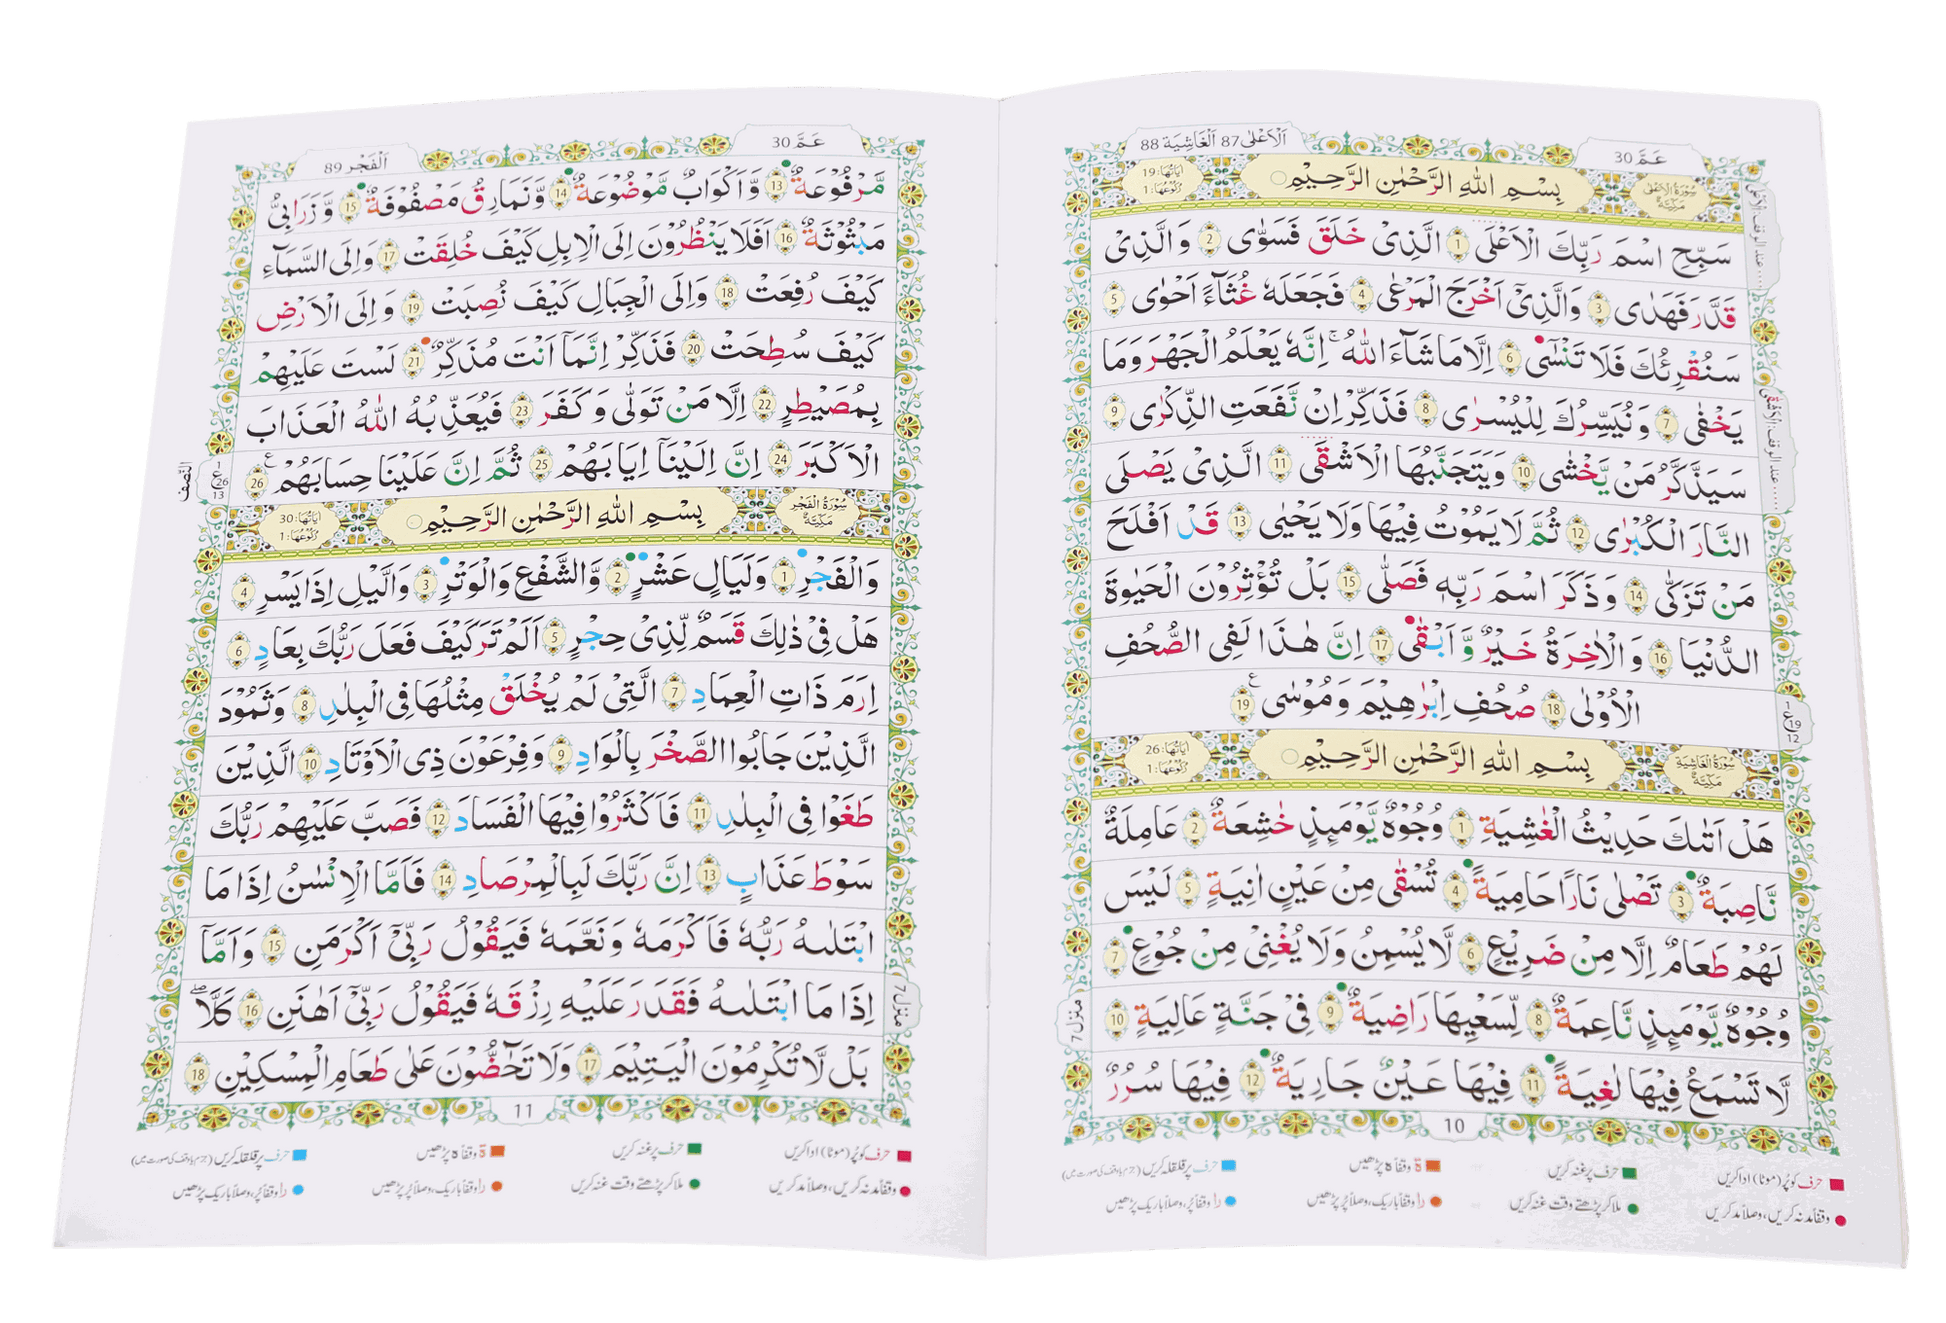 اَلْاَعْلٰى 87 اَلْغَاشِيَة 88
عَمَّ 30
سُوْرَةُ الْاَعْلٰى مَكِّيَّةٌ
بِسْمِ اللّٰهِ الرَّحْمٰنِ الرَّحِيْمِ
اٰيَاتُهَا: 19
رُكُوْعُهَا: 1
سَبِّحِ اسْمَ رَبِّكَ الْاَعْلَى 1 الَّذِىْ خَلَقَ فَسَوّٰى 2 وَالَّذِىْ
قَدَّرَ فَهَدٰى 3 وَالَّذِىْٓ اَخْرَجَ الْمَرْعٰى 4 فَجَعَلَهٗ غُثَآءً اَحْوٰى 5
سَنُقْرِئُكَ فَلَا تَنْسٰٓى 6 اِلَّا مَا شَآءَ اللّٰهُ ۚ اِنَّهٗ يَعْلَمُ الْجَهْرَ وَمَا
يَخْفٰى 7 وَنُيَسِّرُكَ لِلْيُسْرٰى 8 فَذَكِّرْ اِنْ نَّفَعَتِ الذِّكْرٰى 9
سَيَذَّكَّرُ مَنْ يَّخْشٰى 10 وَيَتَجَنَّبُهَا الْاَشْقَى 11 الَّذِىْ يَصْلَى
النَّارَ الْكُبْرٰى 12 ثُمَّ لَا يَمُوْتُ فِيْهَا وَلَا يَحْيٰى 13 قَدْ اَفْلَحَ
مَنْ تَزَكّٰى 14 وَذَكَرَ اسْمَ رَبِّهٖ فَصَلّٰى 15 بَلْ تُؤْثِرُوْنَ الْحَيٰوةَ
الدُّنْيَا 16 وَالْاٰخِرَةُ خَيْرٌ وَّاَبْقٰى 17 اِنَّ هٰذَا لَفِى الصُّحُفِ
الْاُوْلٰى 18 صُحُفِ اِبْرٰهِيْمَ وَمُوْسٰى 19
سُوْرَةُ الْغَاشِيَةِ مَكِّيَّةٌ
بِسْمِ اللّٰهِ الرَّحْمٰنِ الرَّحِيْمِ
اٰيَاتُهَا: 26
رُكُوْعُهَا: 1
هَلْ اَتٰىكَ حَدِيْثُ الْغٰشِيَةِ 1 وُجُوْهٌ يَّوْمَئِذٍ خٰشِعَةٌ 2 عَامِلَةٌ
نَّاصِبَةٌ 3 تَصْلٰى نَارًا حَامِيَةً 4 تُسْقٰى مِنْ عَيْنٍ اٰنِيَةٍ 5 لَيْسَ
لَهُمْ طَعَامٌ اِلَّا مِنْ ضَرِيْعٍ 6 لَّا يُسْمِنُ وَلَا يُغْنِىْ مِنْ جُوْعٍ 7
وُجُوْهٌ يَّوْمَئِذٍ نَّاعِمَةٌ 8 لِّسَعْيِهَا رَاضِيَةٌ 9 فِىْ جَنَّةٍ عَالِيَةٍ 10
لَّا تَسْمَعُ فِيْهَا لٰغِيَةً 11 فِيْهَا عَيْنٌ جَارِيَةٌ 12 فِيْهَا سُرُرٌ
منزل 7
10
حرف کو پُر (موٹا) ادا کریں
حرف پر غنہ کریں
ۃ وقفاً ہ پڑھیں
حرف پر قلقلہ کریں
وقفاً مد نہ کریں، وصلاً مد کریں
ملا کر پڑھتے وقت غنہ کریں
را وقفاً باریک، وصلاً پُر پڑھیں
را وقفاً پُر، وصلاً باریک پڑھیں
عَمَّ 30
اَلْفَجْر 89
مَّرْفُوْعَةٌ 13 وَّاَكْوَابٌ مَّوْضُوْعَةٌ 14 وَّنَمَارِقُ مَصْفُوْفَةٌ 15 وَّزَرَابِىُّ
مَبْثُوْثَةٌ 16 اَفَلَا يَنْظُرُوْنَ اِلَى الْاِبِلِ كَيْفَ خُلِقَتْ 17 وَاِلَى السَّمَآءِ
كَيْفَ رُفِعَتْ 18 وَاِلَى الْجِبَالِ كَيْفَ نُصِبَتْ 19 وَاِلَى الْاَرْضِ
كَيْفَ سُطِحَتْ 20 فَذَكِّرْ اِنَّمَآ اَنْتَ مُذَكِّرٌ 21 لَسْتَ عَلَيْهِمْ
بِمُصَيْطِرٍ 22 اِلَّا مَنْ تَوَلّٰى وَكَفَرَ 23 فَيُعَذِّبُهُ اللّٰهُ الْعَذَابَ
الْاَكْبَرَ 24 اِنَّ اِلَيْنَآ اِيَابَهُمْ 25 ثُمَّ اِنَّ عَلَيْنَا حِسَابَهُمْ 26
النّصف
سُوْرَةُ الْفَجْرِ مَكِّيَّةٌ
بِسْمِ اللّٰهِ الرَّحْمٰنِ الرَّحِيْمِ
اٰيَاتُهَا: 30
رُكُوْعُهَا: 1
وَالْفَجْرِ 1 وَلَيَالٍ عَشْرٍ 2 وَّالشَّفْعِ وَالْوَتْرِ 3 وَالَّيْلِ اِذَا يَسْرِ 4
هَلْ فِىْ ذٰلِكَ قَسَمٌ لِّذِىْ حِجْرٍ 5 اَلَمْ تَرَ كَيْفَ فَعَلَ رَبُّكَ بِعَادٍ 6
اِرَمَ ذَاتِ الْعِمَادِ 7 الَّتِىْ لَمْ يُخْلَقْ مِثْلُهَا فِى الْبِلَادِ 8 وَثَمُوْدَ
الَّذِيْنَ جَابُوا الصَّخْرَ بِالْوَادِ 9 وَفِرْعَوْنَ ذِى الْاَوْتَادِ 10 الَّذِيْنَ
طَغَوْا فِى الْبِلَادِ 11 فَاَكْثَرُوْا فِيْهَا الْفَسَادَ 12 فَصَبَّ عَلَيْهِمْ رَبُّكَ
سَوْطَ عَذَابٍ 13 اِنَّ رَبَّكَ لَبِالْمِرْصَادِ 14 فَاَمَّا الْاِنْسٰنُ اِذَا مَا
ابْتَلٰىهُ رَبُّهٗ فَاَكْرَمَهٗ وَنَعَّمَهٗ فَيَقُوْلُ رَبِّىْٓ اَكْرَمَنِ 15 وَاَمَّآ
اِذَا مَا ابْتَلٰىهُ فَقَدَرَ عَلَيْهِ رِزْقَهٗ فَيَقُوْلُ رَبِّىْٓ اَهَانَنِ 16 كَلَّا
بَلْ لَّا تُكْرِمُوْنَ الْيَتِيْمَ 17 وَلَا تَحٰٓضُّوْنَ عَلٰى طَعَامِ الْمِسْكِيْنِ 18
منزل 7
11
حرف کو پُر (موٹا) ادا کریں
حرف پر غنہ کریں
ۃ وقفاً ہ پڑھیں
حرف پر قلقلہ کریں
وقفاً مد نہ کریں، وصلاً مد کریں
ملا کر پڑھتے وقت غنہ کریں
را وقفاً باریک، وصلاً پُر پڑھیں
را وقفاً پُر، وصلاً باریک پڑھیں